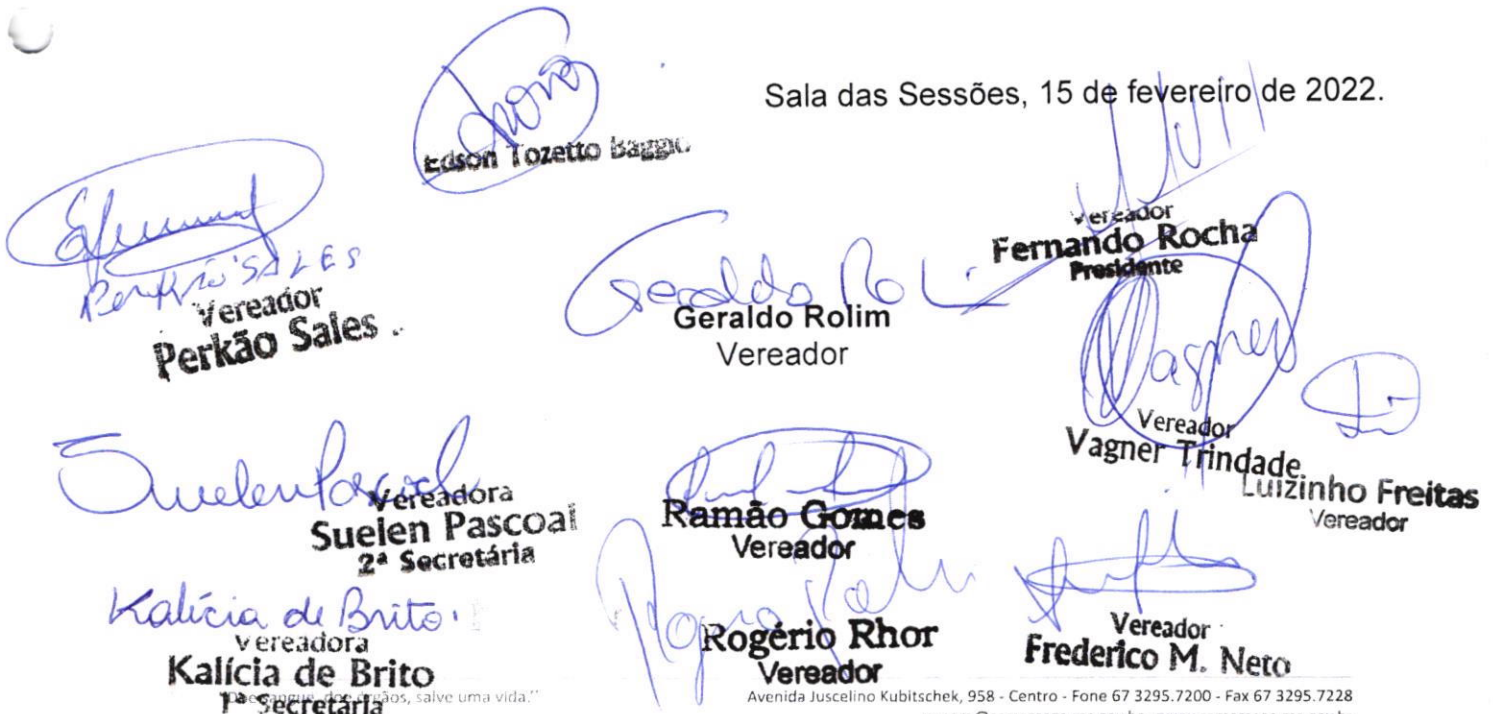 Sala das Sessões, 15 de fevereiro de 2022.
Edson Tozetto Baggio
Vereador
Fernando Rocha
Presidente
SALES
Vereador
Perkão Sales
Geraldo Rol
Geraldo Rolim
Vereador
Vagner
Vereador
Vagner Trindade
Luizinho Freitas
Vereador
Suelen Pascoal
Vereadora
Suelen Pascoal
2ª Secretária
Ramão Gomes
Vereador
Kalícia de Brito
Vereadora
Kalícia de Brito
1ª Secretária
Rogério Rhor
Vereador
Vereador
Frederico M. Neto
"Doe sangue, doe órgãos, salve uma vida."
Avenida Juscelino Kubitschek, 958 - Centro - Fone 67 3295.7200 - Fax 67 3295.7228